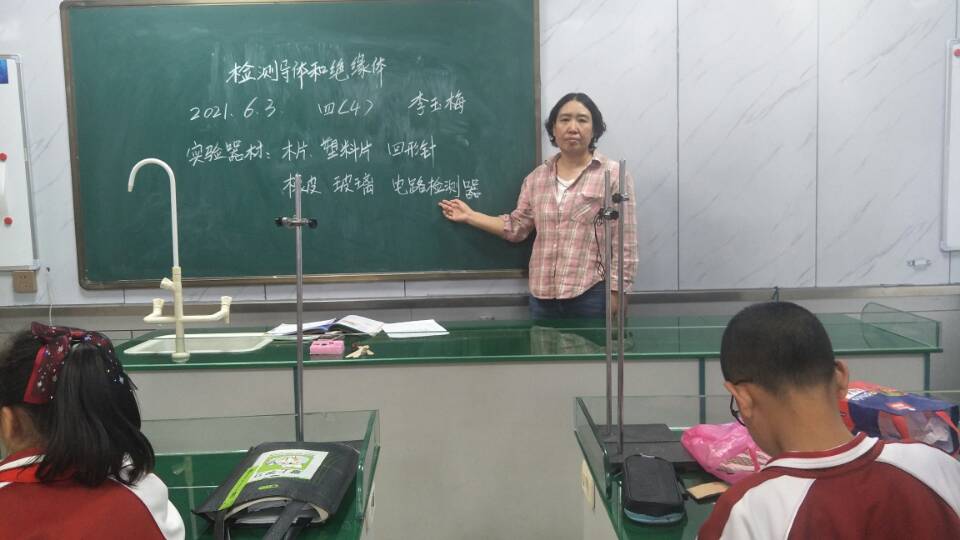 检测导体和绝缘体
2021.6.3. 四(4) 李玉梅
实验器材：木片、塑料片 回形针
橡皮 玻璃 电路检测器